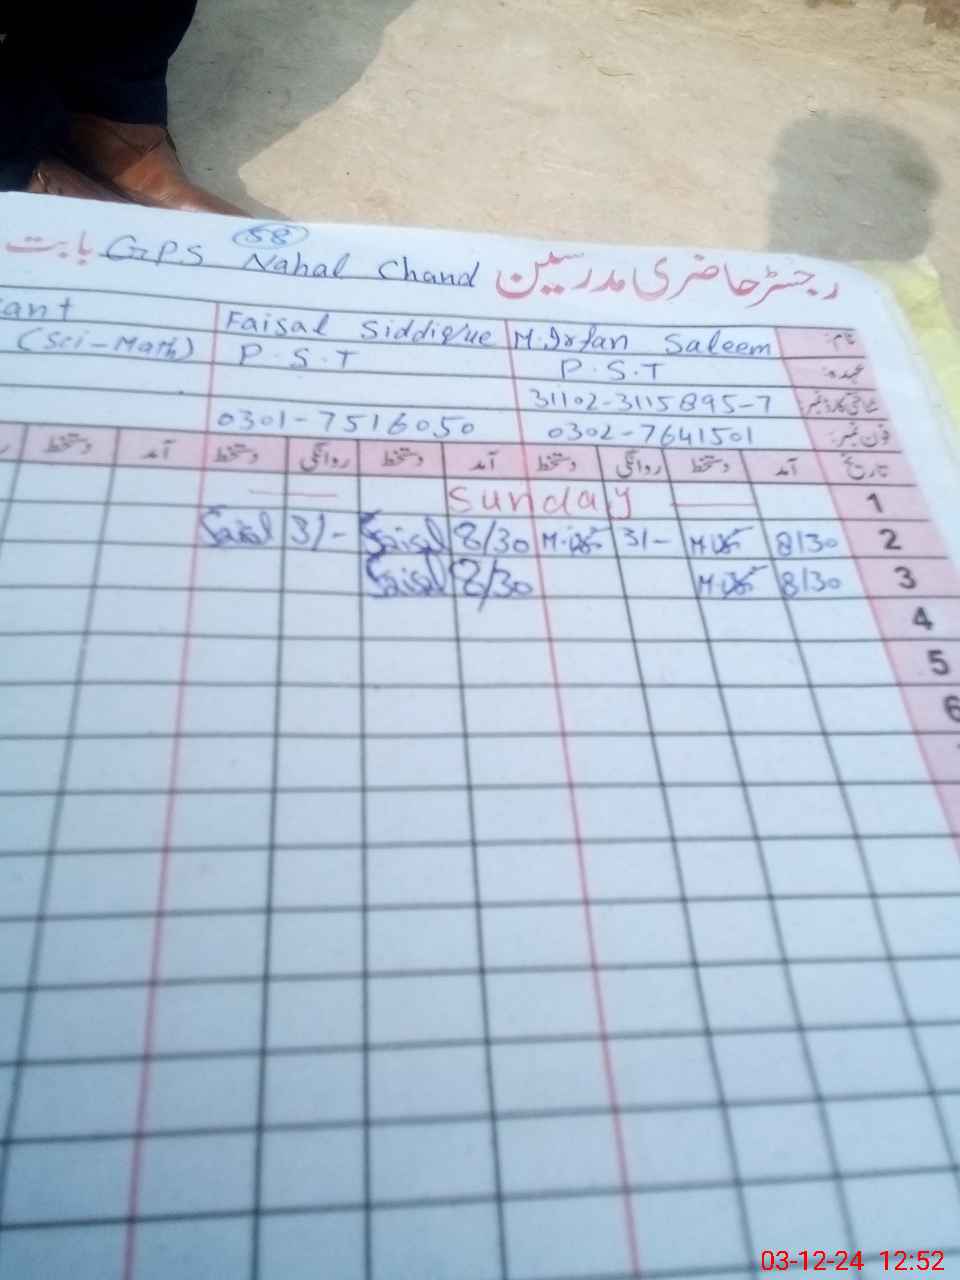 رجسٹر حاضری مدرسین GPS Nahal Chand بابت
58
نام: M. Irfan Saleem Faisal Siddique cant
عہدہ: P.S.T P.S.T (Sci-Math)
شناختی کارڈ نمبر: 31102-3115895-7
فون نمبر: 0302-7641501 0301-7516050
تاریخ آمد دستخط روانگی دستخط آمد دستخط روانگی دستخط آمد دستخط
1 Sunday
2 8/30 3/- 8/30 Faisal 3/- Faisal
3 8/30 8/30 Faisal
4
5
6
03-12-24 12:52